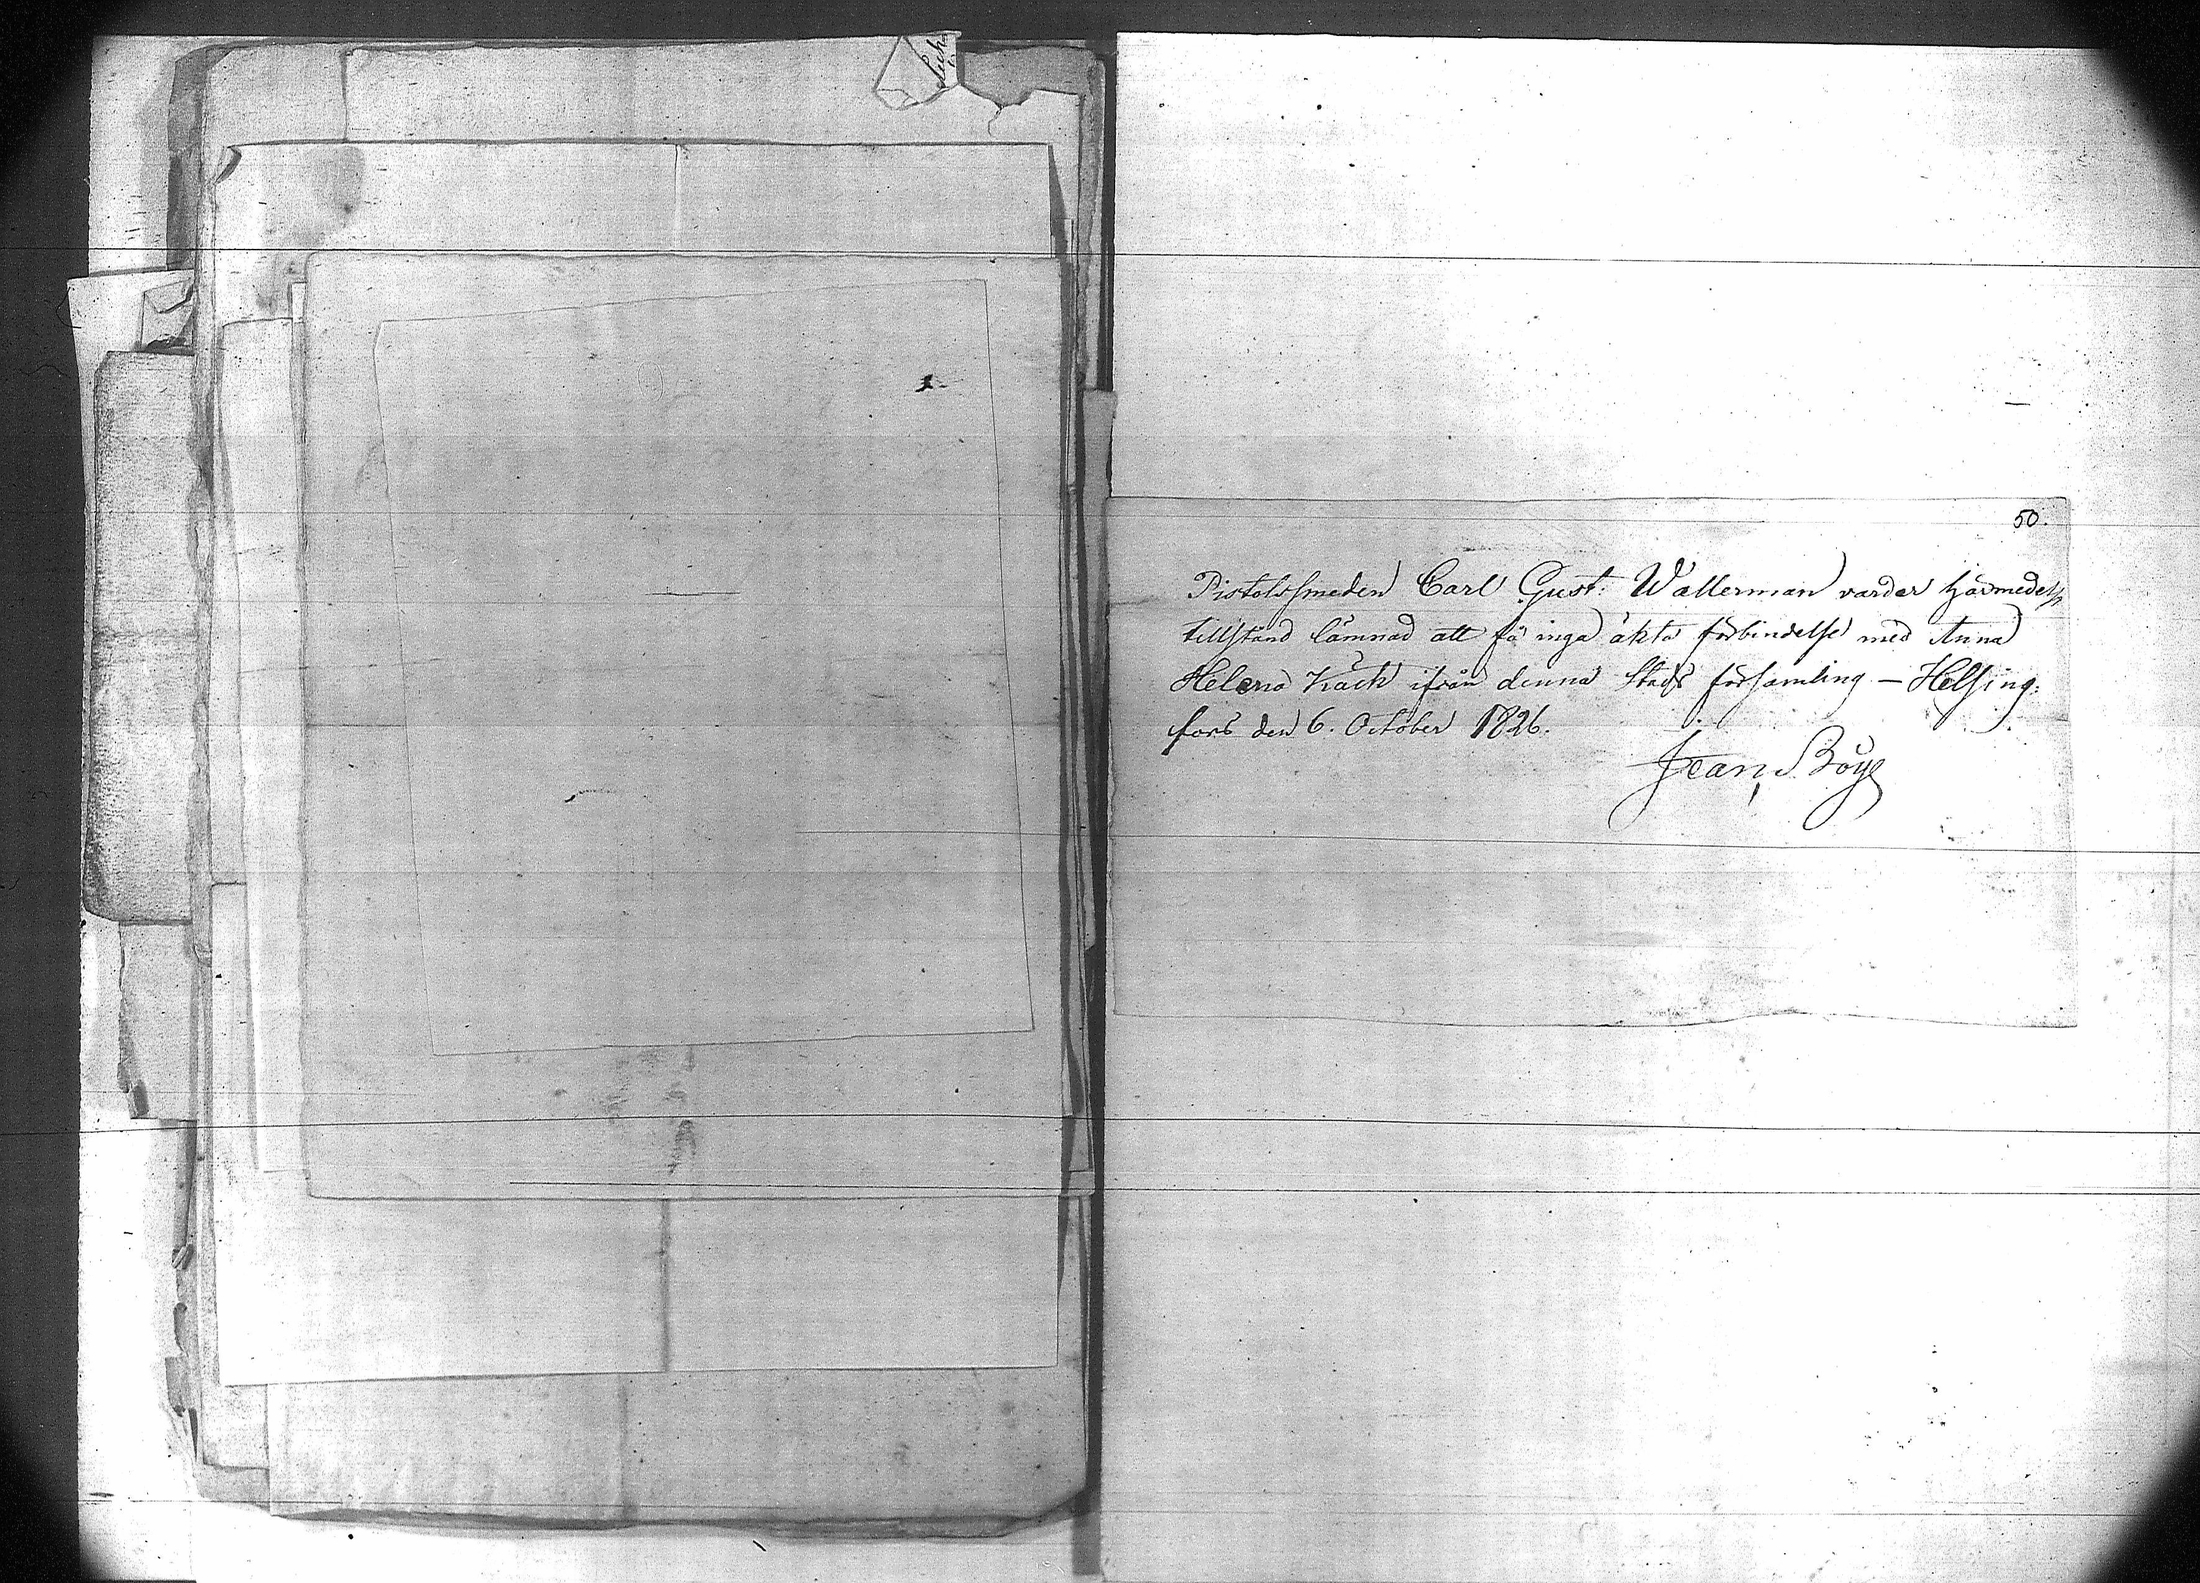 50.
Pistolssmeden Carl Gust: Wallerman varder härmedelst
tillstånd lämnad att få inga äkta förbindelse med Anna
Helena Käck ifrån denna Stads församling — Helsing:
fors den 6. October 1826.
Jean Böye